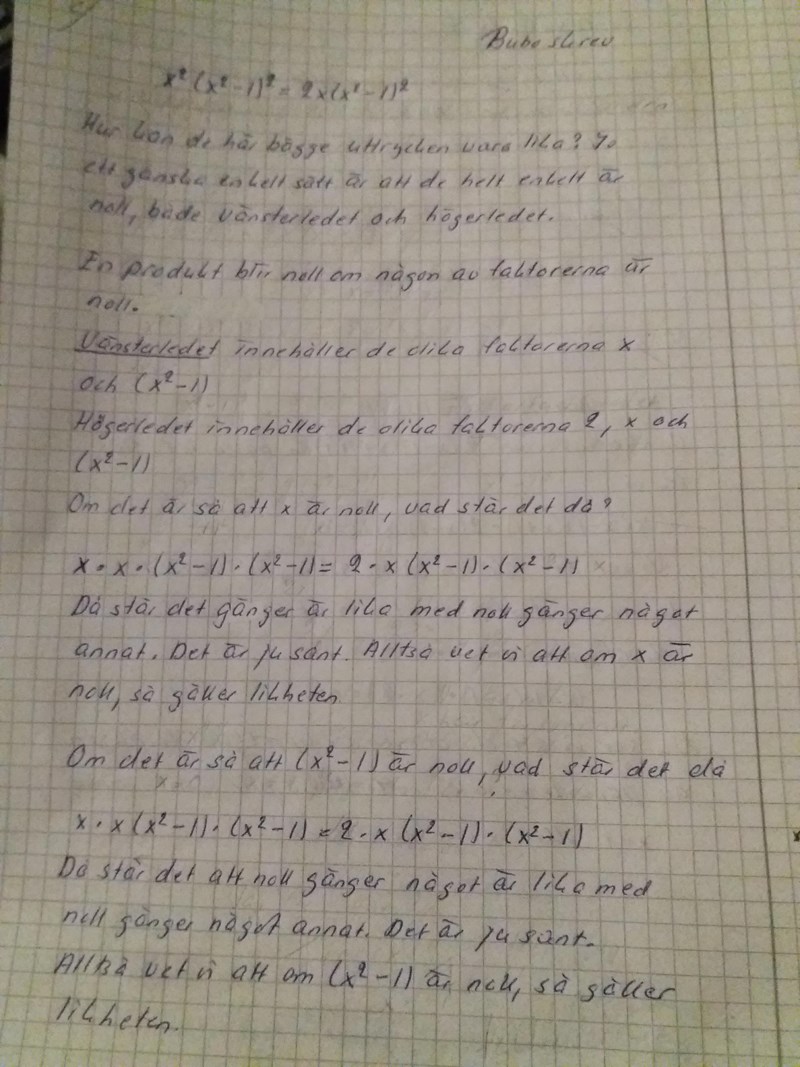 Bubo skrev
x² (x²-1)² = 2x(x²-1)²
Hur kan de här bägge uttrycken vara lika? Jo
ett ganska enkelt sätt är att de helt enkelt är
noll, både vänsterledet och högerledet.
En produkt blir noll om någon av faktorerna är
noll.
Vänsterledet innehåller de olika faktorerna x
och (x²-1)
Högerledet innehåller de olika faktorerna 2, x och
(x²-1)
Om det är så att x är noll, vad står det då?
x · x · (x²-1) · (x²-1) = 2 · x (x²-1) · (x²-1)
Då står det gånger är lika med noll gånger något
annat. Det är ju sant. Alltså vet vi att om x är
noll, så gäller likheten
Om det är så att (x²-1) är noll, vad står det då
x · x (x²-1) · (x²-1) = 2 · x (x²-1) · (x²-1)
Då står det att noll gånger något är lika med
noll gånger något annat. Det är ju sant.
Alltså vet vi att om (x²-1) är noll, så gäller
likheten.